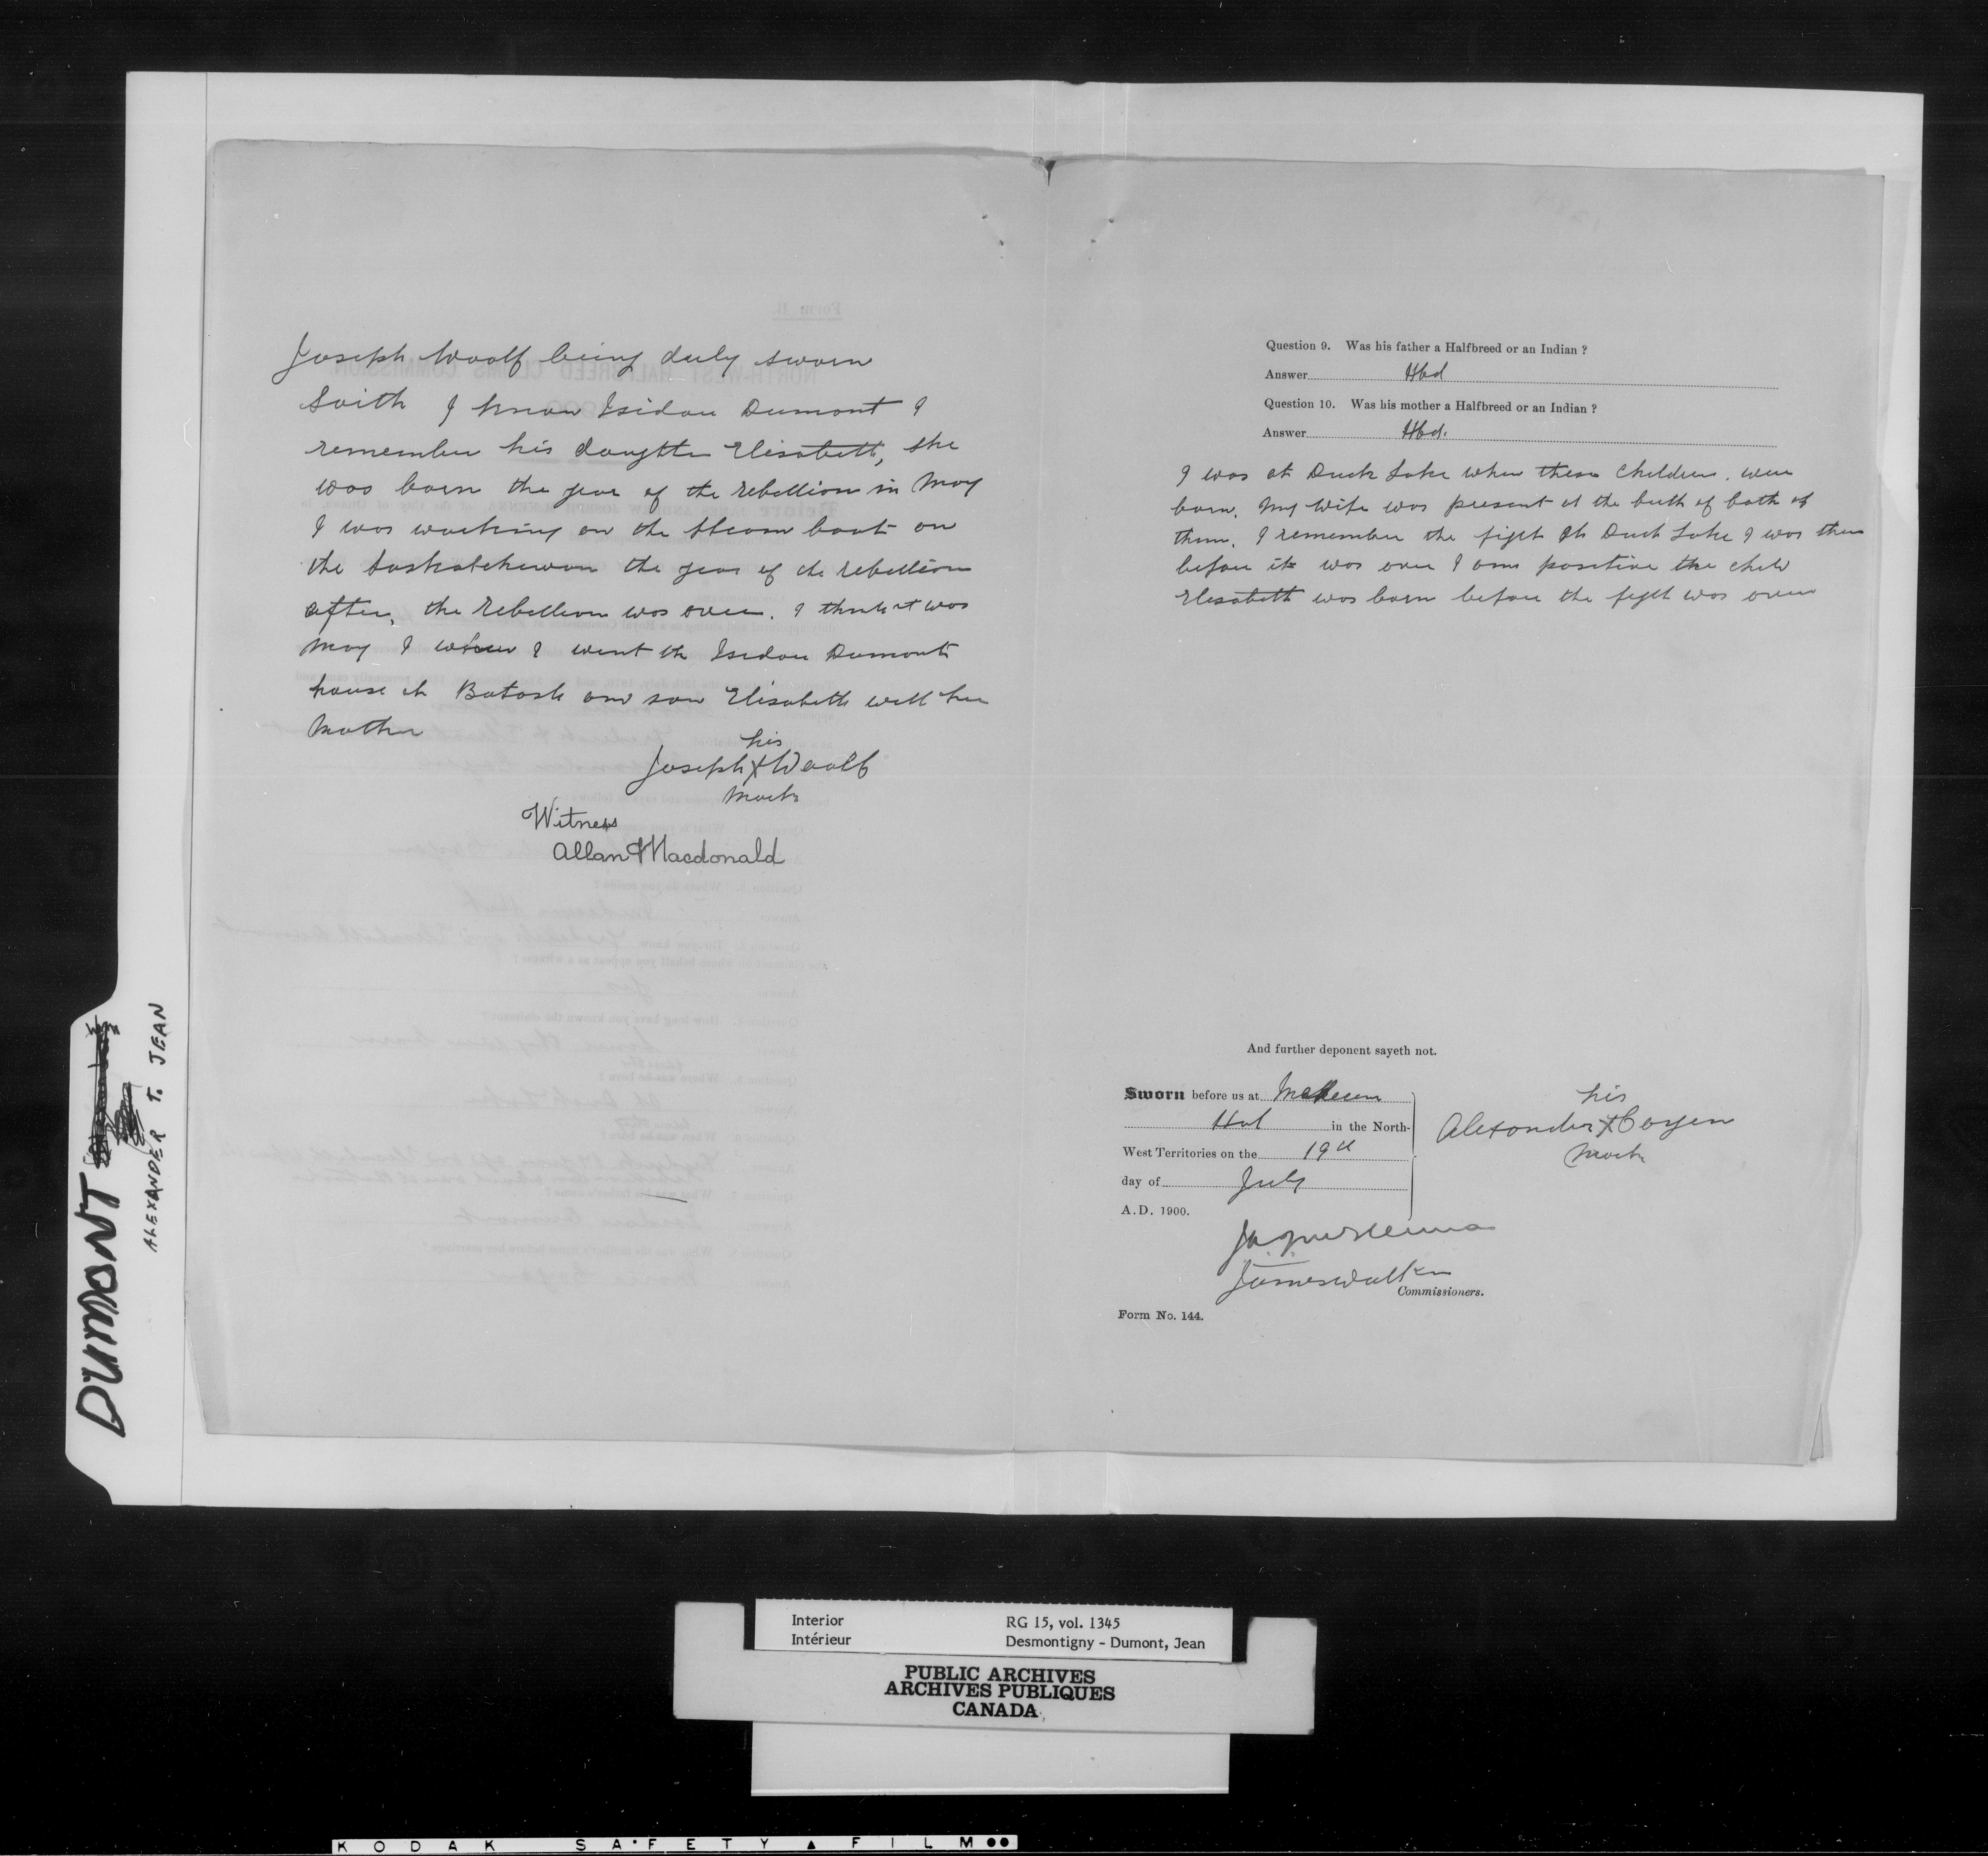 Joseph Woolf being duly sworn
Saith I know Isidore Dumont I
remember his daughter Elisabeth, she
was born the year of the rebellion in May
I was working on the steam boat on
the Saskatchewan the year of the rebellion
after, the rebellion was over. I think it was
May I when I went to Isidore Dumonts
house at Batosh and saw Elisabeth with her
Mother
his
Joseph X Woolf
Mark
Witness
Allan Macdonald
Question 9. Was his father a Halfbreed or an Indian ?
Answer Hbd
Question 10. Was his mother a Halfbreed or an Indian ?
Answer Hbd.
I was at Duck Lake when these children were
born. My wife was present at the birth of both of
them. I remember the fight at Duck Lake I was there
before it was over I am positive the child
Elisabeth was born before the fight was over
And further deponent sayeth not.
Sworn before us at Medicine
Hat in the North-
West Territories on the 19th
day of July
A.D. 1900.
his
Alexander X Boyer
Mark
James Walker
Commissioners.
Form No. 144.
DUMONT
ALEXANDER T. JEAN
Interior RG 15, vol. 1345
Intérieur Desmontigny - Dumont, Jean
PUBLIC ARCHIVES
ARCHIVES PUBLIQUES
CANADA
KODAK SAFETY FILM